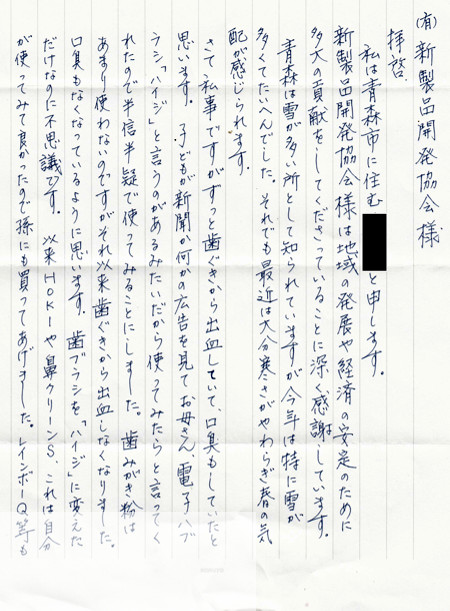 (有)新製品開発協会様
拝啓
私は青森市に住む と申します。
新製品開発協会様は地域の発展や経済の安定のために
多大の貢献をしてくださっていることに深く感謝しています。
青森は雪が多い所として知られていますが今年は特に雪が
多くてたいへんでした。それでも最近は大分寒さがやわらぎ春の気
配が感じられます。
さて私事ですがずっと歯ぐきから出血していて、口臭もしていたと
思います。子どもが新聞か何かの広告を見てお母さん、電子ハブ
ラシ「ハイジ」と言うのがあるみたいだから使ってみたらと言ってく
れたので半信半疑で使ってみることにしました。歯みがき粉は
あまり使わないのですがそれ以来歯ぐきから出血しなくなりました。
口臭もなくなっているように思います。歯ブラシを「ハイジ」に変えた
だけなのに不思議です。以来HOKIや鼻クリーンS、これは自分
が使ってみて良かったので孫にも買ってあげました。レインボーQ等も